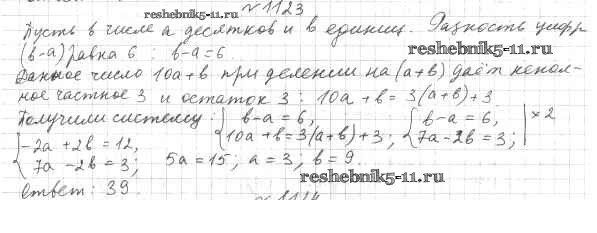 №1123 reshebnik5-11.ru
Пусть в числе а десятков и в единиц. Разность цифр
(в-а) равна 6 : в-а=6 reshebnik5-11.ru
Данное число 10а+в при делении на (а+в) даёт непол-
ное частное 3 и остаток 3 : 10а+в=3(а+в)+3
Получили систему: { в-а=6, 10а+в=3(а+в)+3; { в-а=6, 7а-2в=3; | ×2
{ -2а+2в=12, 7а-2в=3; 5а=15; а=3, в=9.
Ответ: 39. reshebnik5-11.ru
№1124